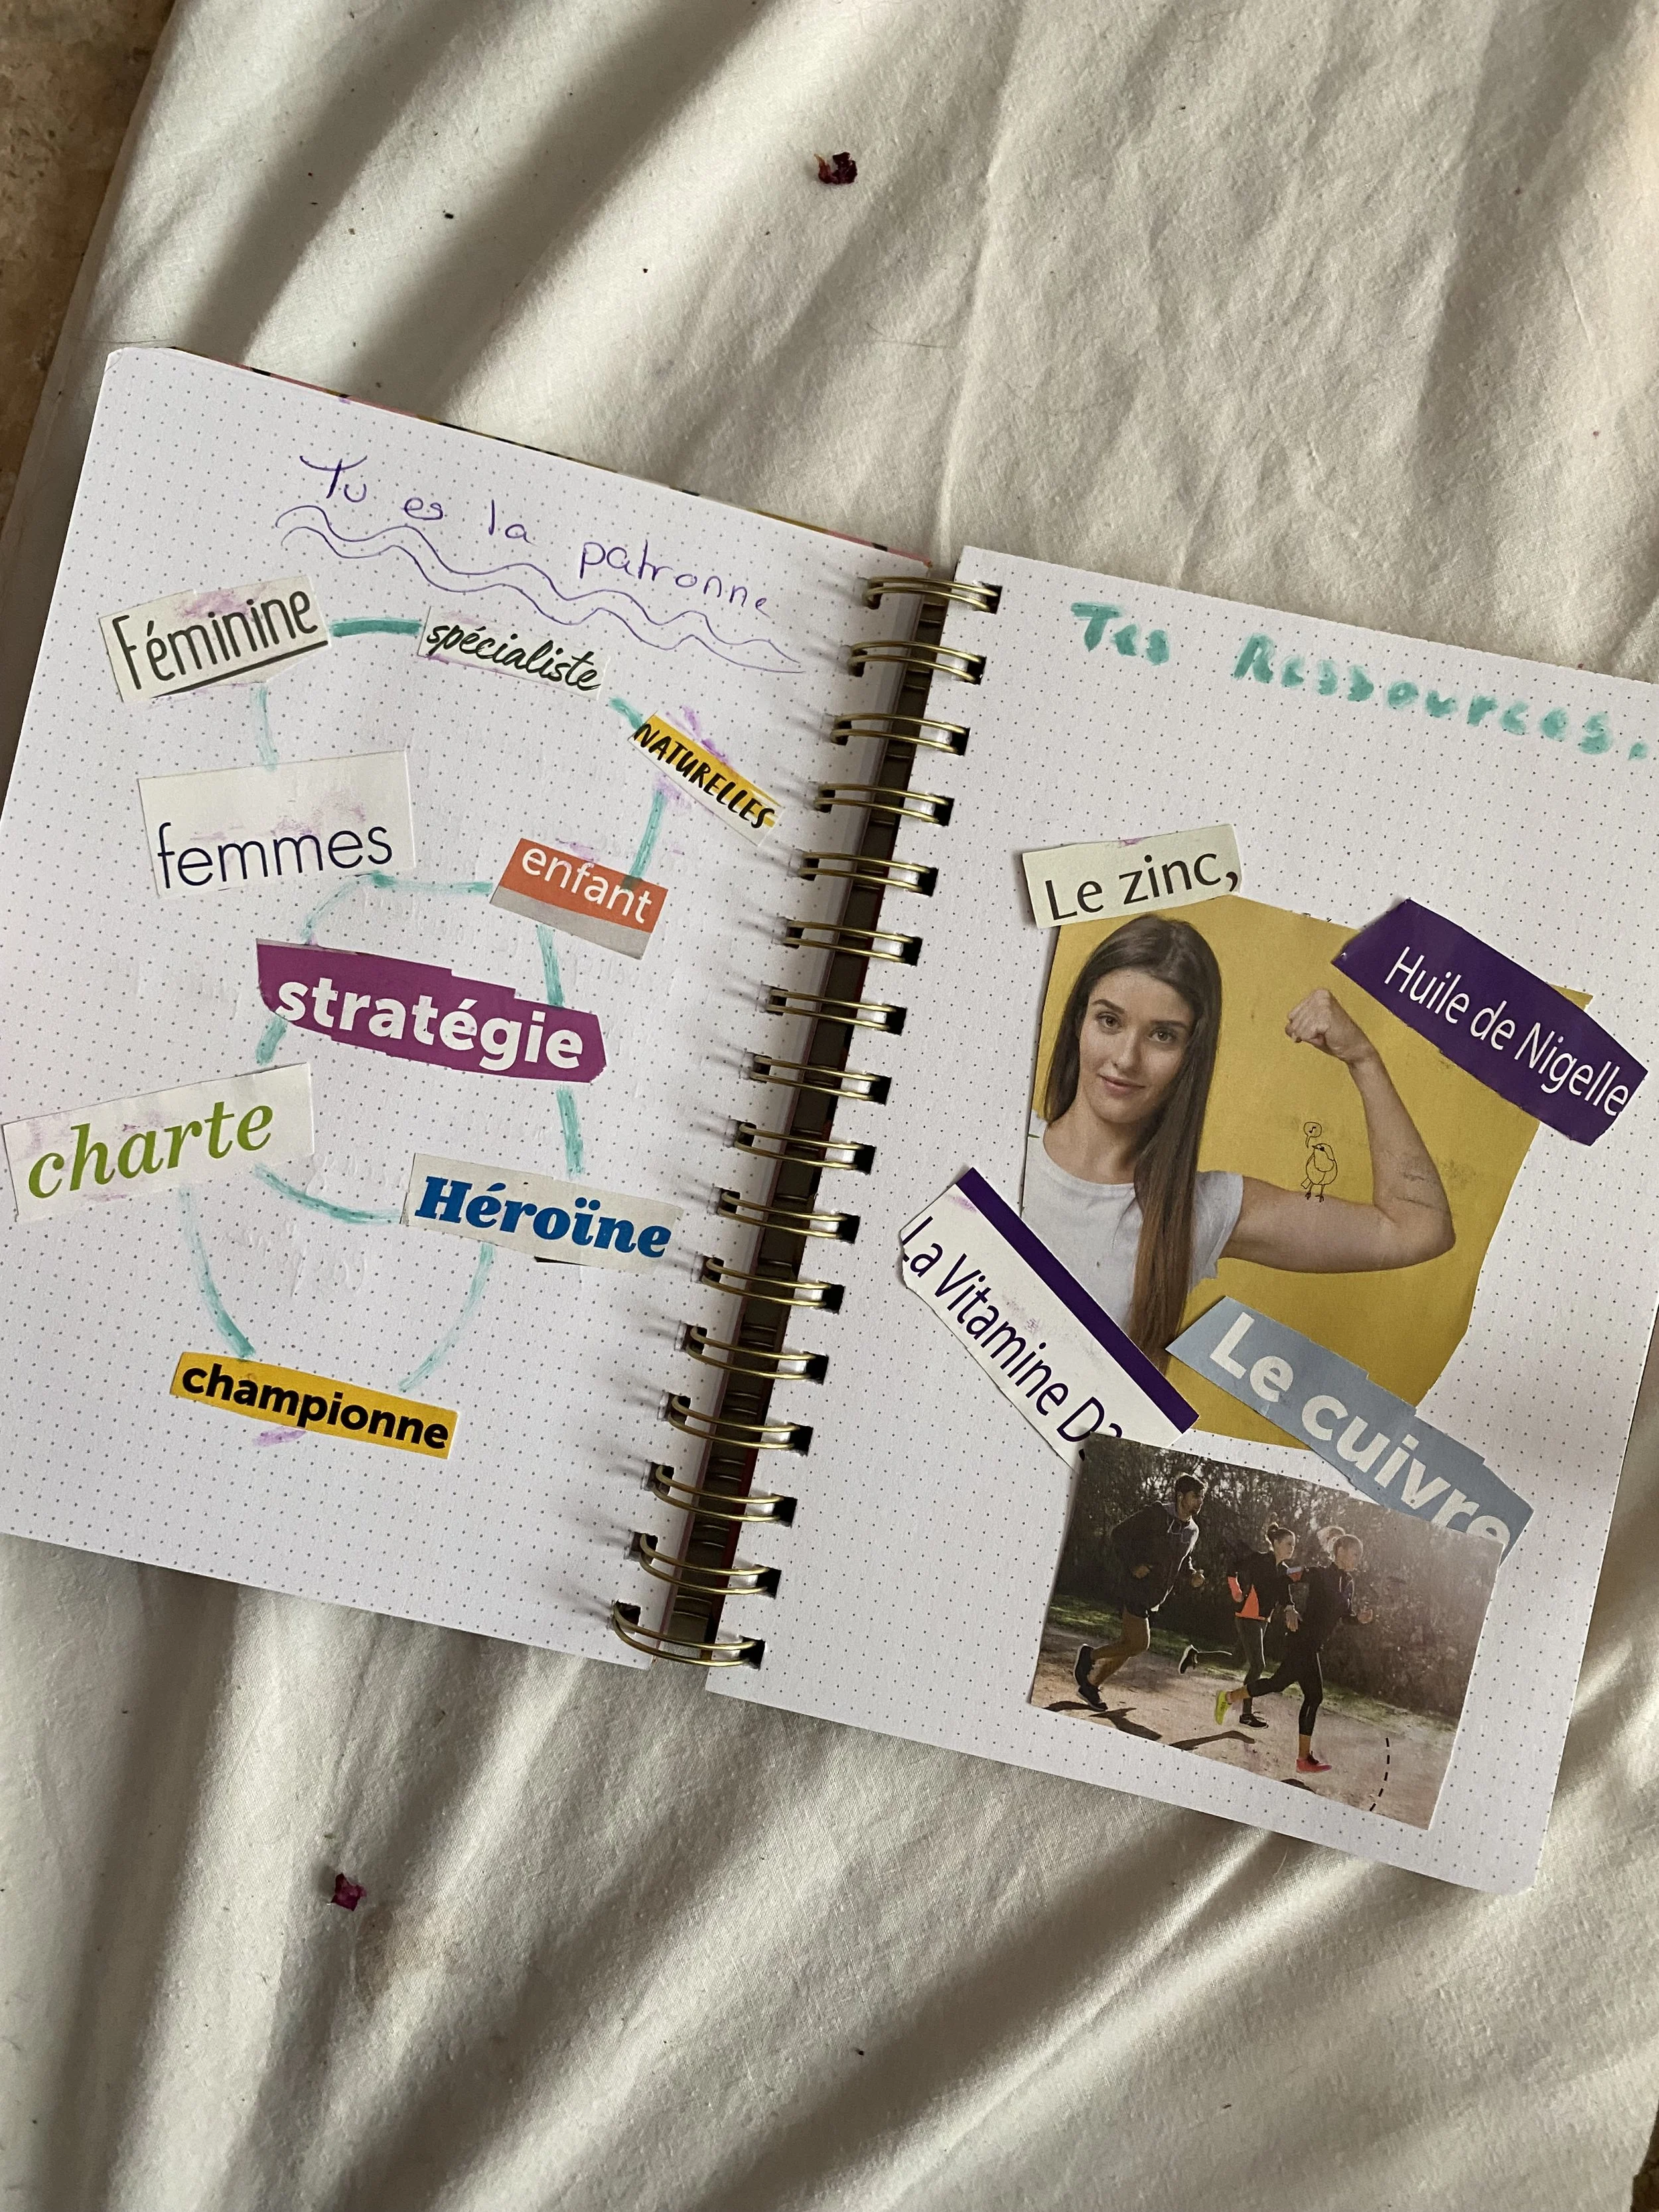 Tu es la patronne
Féminine
spécialiste
NATURELLES
femmes
enfant
stratégie
charte
Héroïne
championne
Tes Ressources.
Le zinc,
Huile de Nigelle
La Vitamine D3
Le cuivre